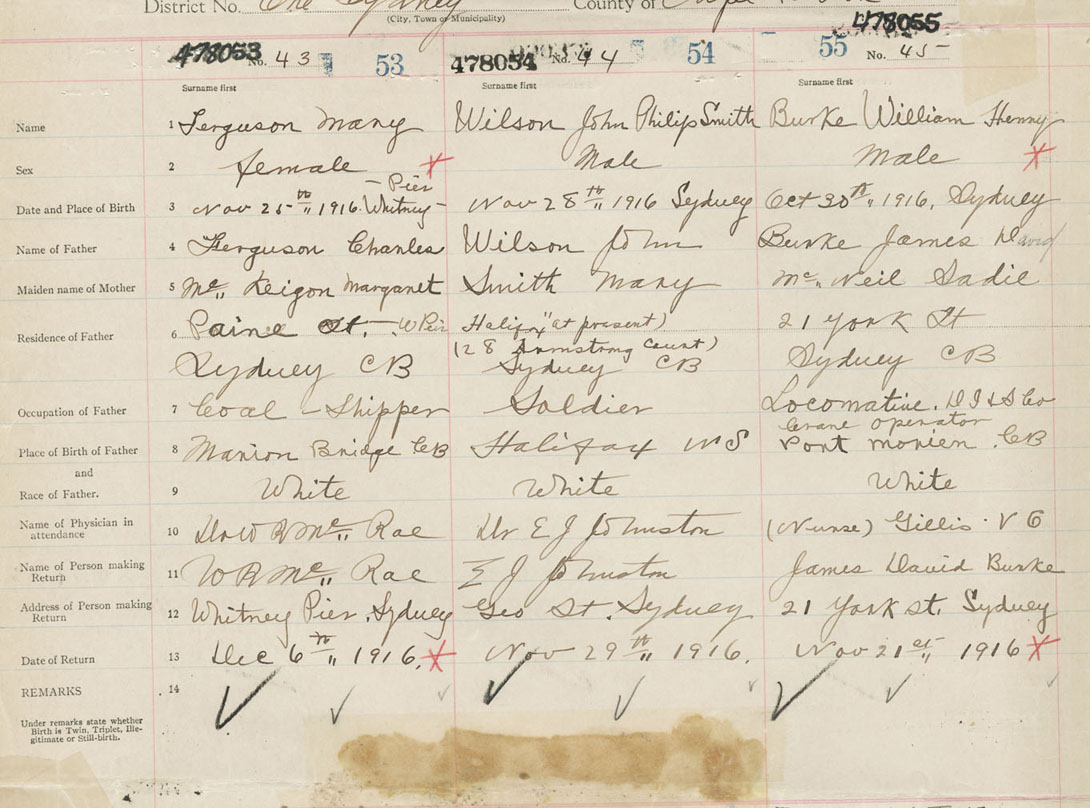 District No. One Sydney County of Cape
(City, Town or Municipality)
478053 No. 43 53 478054 No. 44 54 55 No. 45 478055
Surname first Surname first Surname first
Name 1 Ferguson Mary Wilson John Philip Smith Burke William Henry
Sex 2 female Male Male
Date and Place of Birth 3 Nov 25th 1916. Whitney Pier Nov 28th 1916 Sydney Oct 30th, 1916, Sydney
Name of Father 4 Ferguson Charles Wilson John Burke James David
Maiden name of Mother 5 Mc Keigon Margaret Smith Mary Mc Neil Sadie
Residence of Father 6 Paine St. W Pier Halifax "at present) 21 York St
(28 Armstrong Court)
Sydney CB Sydney CB Sydney CB
Occupation of Father 7 Coal Shipper Soldier Locomotive. D I & S Co
Crane operator
Place of Birth of Father 8 Marion Bridge CB Halifax NS Port Morien. CB
and
Race of Father. 9 White White White
Name of Physician in attendance 10 Dr W R Mc Rae Dr E J Johnston (Nurse) Gillis V G
Name of Person making Return 11 W R Mc Rae E J Johnston James David Burke
Address of Person making Return 12 Whitney Pier, Sydney Geo St. Sydney 21 York st. Sydney
Date of Return 13 Dec 6th 1916. Nov 29th 1916. Nov 21st 1916
REMARKS 14
Under remarks state whether
Birth is Twin, Triplet, Ille-
gitimate or Still-birth.